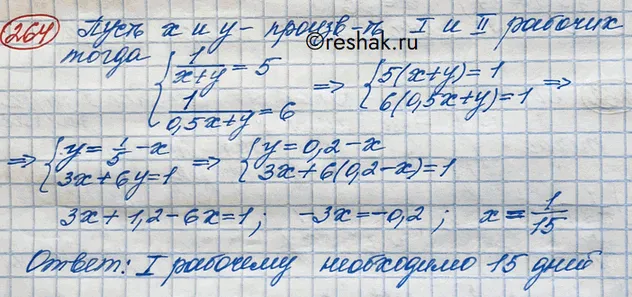 264 Пусть x и y - произв-ть I и II рабочих
©reshak.ru
тогда { 1/(x+y) = 5 ⇒ { 5(x+y)=1 ⇒
1/(0,5x+y) = 6 6(0,5x+y)=1
⇒ { y = 1/5 - x ⇒ { y = 0,2 - x
3x + 6y = 1 3x + 6(0,2-x) = 1
3x + 1,2 - 6x = 1 ; -3x = -0,2 ; x = 1/15
Ответ: I рабочему необходимо 15 дней